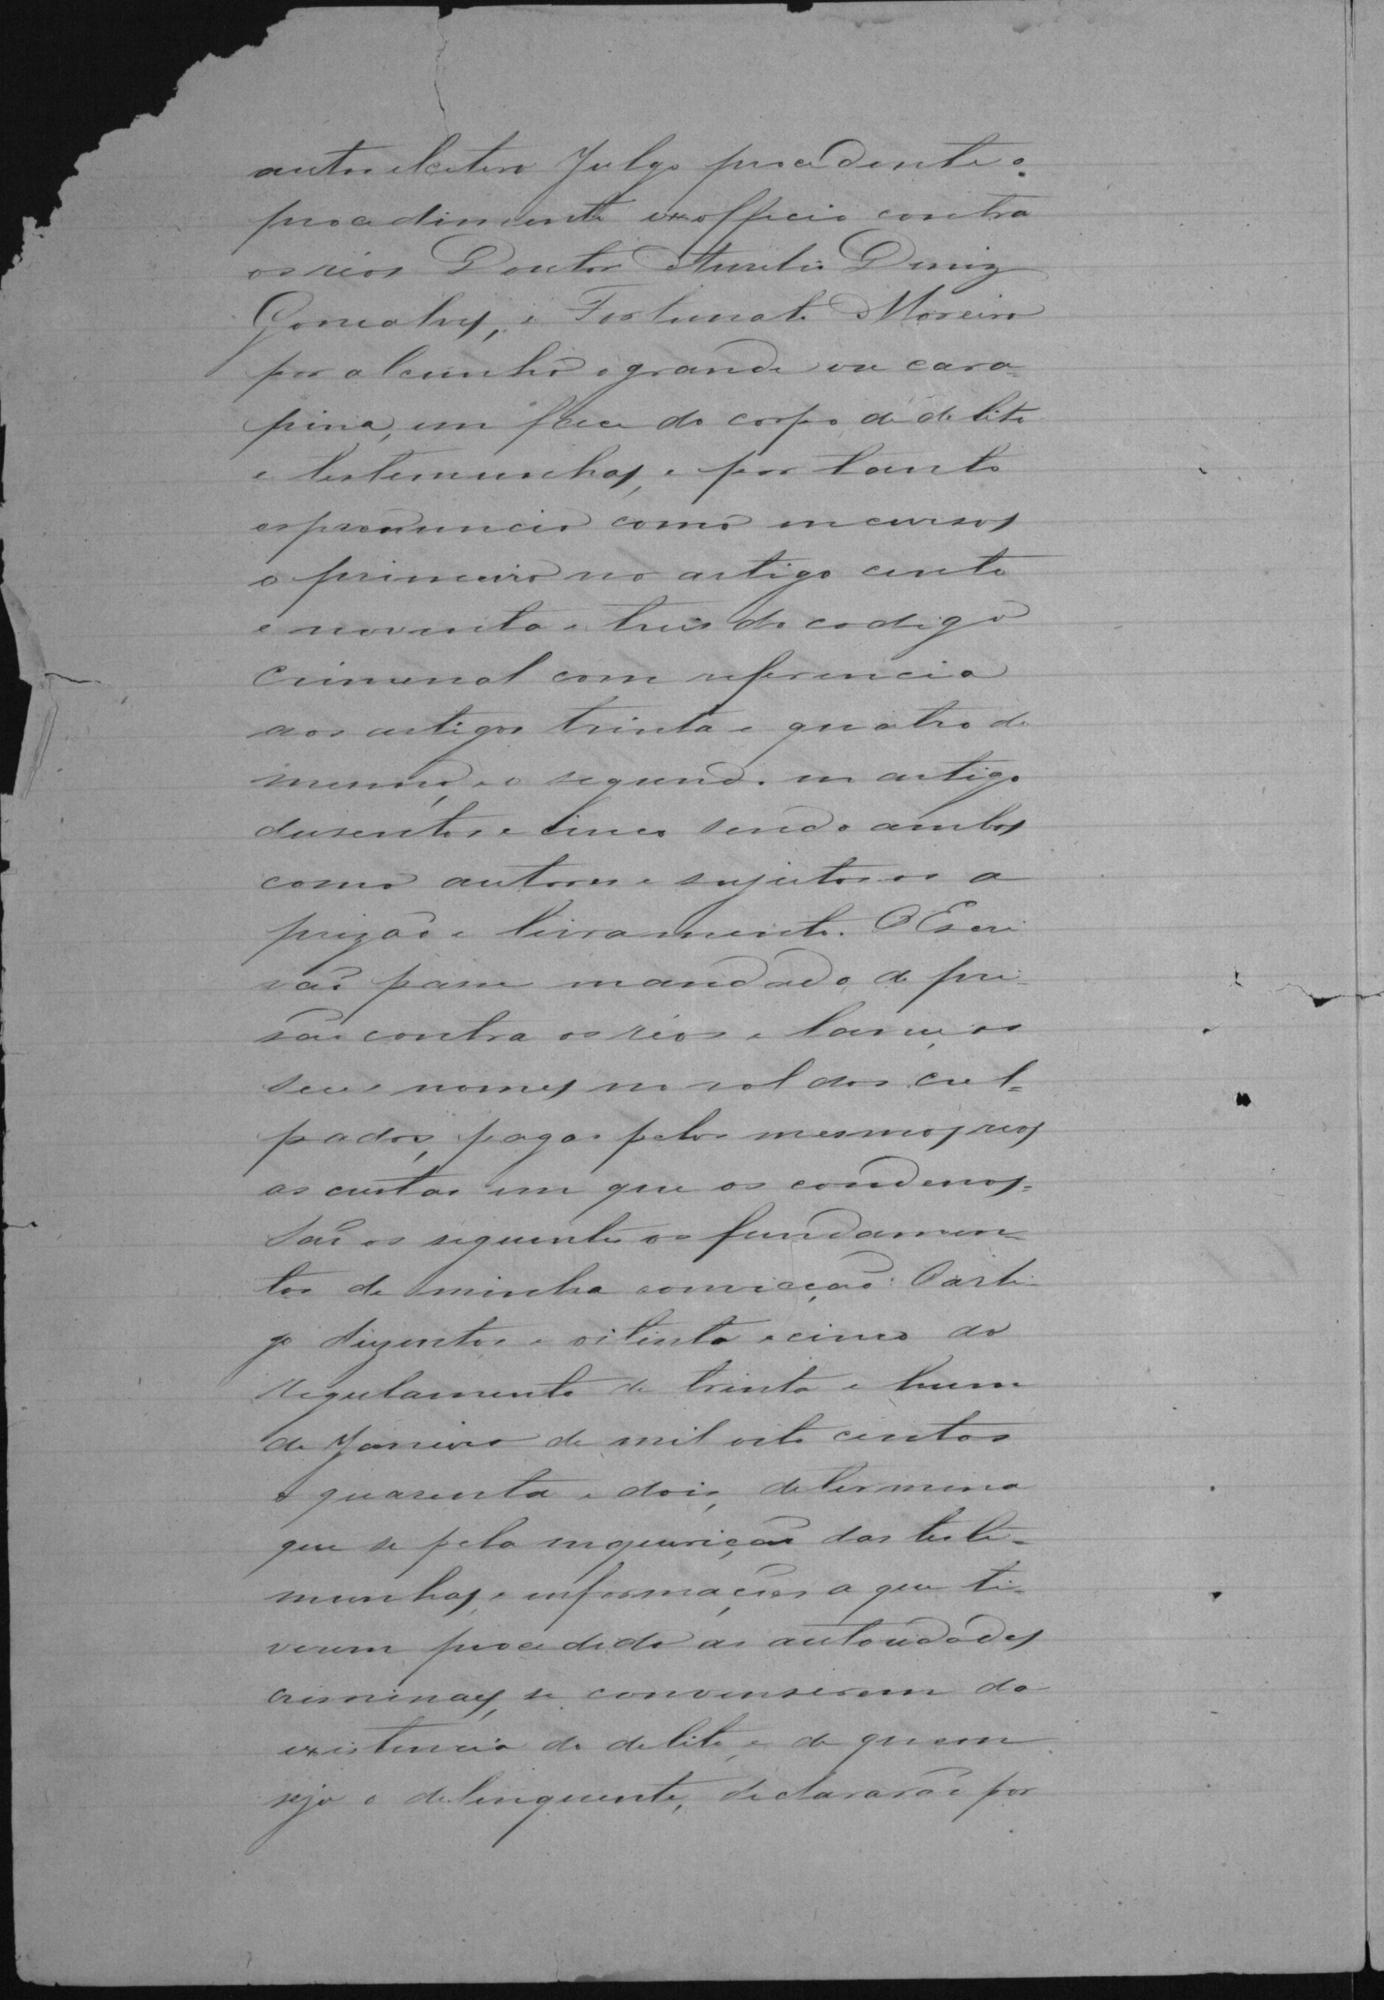 autos etcetera Julgo procedente o
procedimento exofficio contra
os réos Doutor Aurelio Diniz
Gonsalves, e Fortunato Moreira
por alcunha o grande ou cara-
pina, em face do corpo de delito
e testemunhas, e por tanto
os pronuncio como incursos
o primeiro no artigo cento
e noventa e tres do codigo
Criminal com referencia
aos artigos trinta e quatro do
mesmo, e o segundo no artigo
dusentos e cinco sendo ambos
como autores e sujeitos os a
prizão e livramento. O Escri
vão passe mandado de pri-
são contra os réos e lance os
seus nomes no rol dos cul-
pados, pagas pelos mesmos reos
as custas em que os condenos.
São os seguintes os fundamen-
tos de minha convicção: O arti-
go duzentos e oitenta e cinco do
regulamento de trinta e hum
de Janeiro de mil oito centos
e quarenta e dois, determina
que se pela inquirição das teste-
munhas, e informações a que ti-
verem procedido as autoridades
criminaes, se convenserem da
existencia do delito, e de quem
seja o delinquente, declararão por